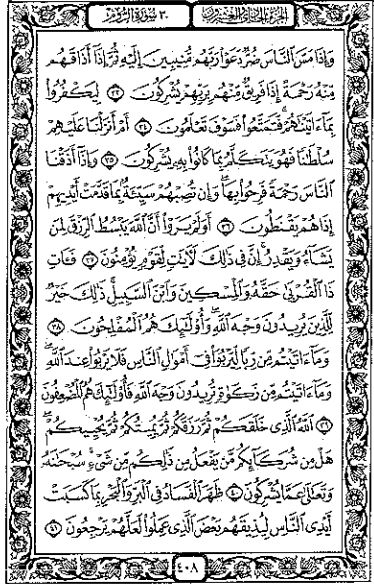 الجزء الحادي والعشرون ٣٠ سورة الروم
وَإِذَا مَسَّ النَّاسَ ضُرٌّ دَعَوْا رَبَّهُم مُّنِيبِينَ إِلَيْهِ ثُمَّ إِذَا أَذَاقَهُم
مِّنْهُ رَحْمَةً إِذَا فَرِيقٌ مِّنْهُم بِرَبِّهِمْ يُشْرِكُونَ ٣٣ لِيَكْفُرُوا
بِمَا ءَاتَيْنَاهُمْ فَتَمَتَّعُوا فَسَوْفَ تَعْلَمُونَ ٣٤ أَمْ أَنزَلْنَا عَلَيْهِمْ
سُلْطَانًا فَهُوَ يَتَكَلَّمُ بِمَا كَانُوا بِهِ يُشْرِكُونَ ٣٥ وَإِذَا أَذَقْنَا
النَّاسَ رَحْمَةً فَرِحُوا بِهَا وَإِن تُصِبْهُمْ سَيِّئَةٌ بِمَا قَدَّمَتْ أَيْدِيهِمْ
إِذَا هُمْ يَقْنَطُونَ ٣٦ أَوَلَمْ يَرَوْا أَنَّ اللَّهَ يَبْسُطُ الرِّزْقَ لِمَن
يَشَاءُ وَيَقْدِرُ إِنَّ فِي ذَٰلِكَ لَآيَاتٍ لِّقَوْمٍ يُؤْمِنُونَ ٣٧ فَـَٔاتِ
ذَا الْقُرْبَىٰ حَقَّهُ وَالْمِسْكِينَ وَابْنَ السَّبِيلِ ذَٰلِكَ خَيْرٌ
لِّلَّذِينَ يُرِيدُونَ وَجْهَ اللَّهِ وَأُولَٰئِكَ هُمُ الْمُفْلِحُونَ ٣٨
وَمَا ءَاتَيْتُم مِّن رِّبًا لِّيَرْبُوَا فِي أَمْوَالِ النَّاسِ فَلَا يَرْبُوا عِندَ اللَّهِ
وَمَا ءَاتَيْتُم مِّن زَكَوٰةٍ تُرِيدُونَ وَجْهَ اللَّهِ فَأُولَٰئِكَ هُمُ الْمُضْعِفُونَ
٣٩ اللَّهُ الَّذِي خَلَقَكُمْ ثُمَّ رَزَقَكُمْ ثُمَّ يُمِيتُكُمْ ثُمَّ يُحْيِيكُمْ
هَلْ مِن شُرَكَائِكُم مَّن يَفْعَلُ مِن ذَٰلِكُم مِّن شَيْءٍ سُبْحَانَهُ
وَتَعَالَىٰ عَمَّا يُشْرِكُونَ ٤٠ ظَهَرَ الْفَسَادُ فِي الْبَرِّ وَالْبَحْرِ بِمَا كَسَبَتْ
أَيْدِي النَّاسِ لِيُذِيقَهُم بَعْضَ الَّذِي عَمِلُوا لَعَلَّهُمْ يَرْجِعُونَ ٤١
٤٠٨